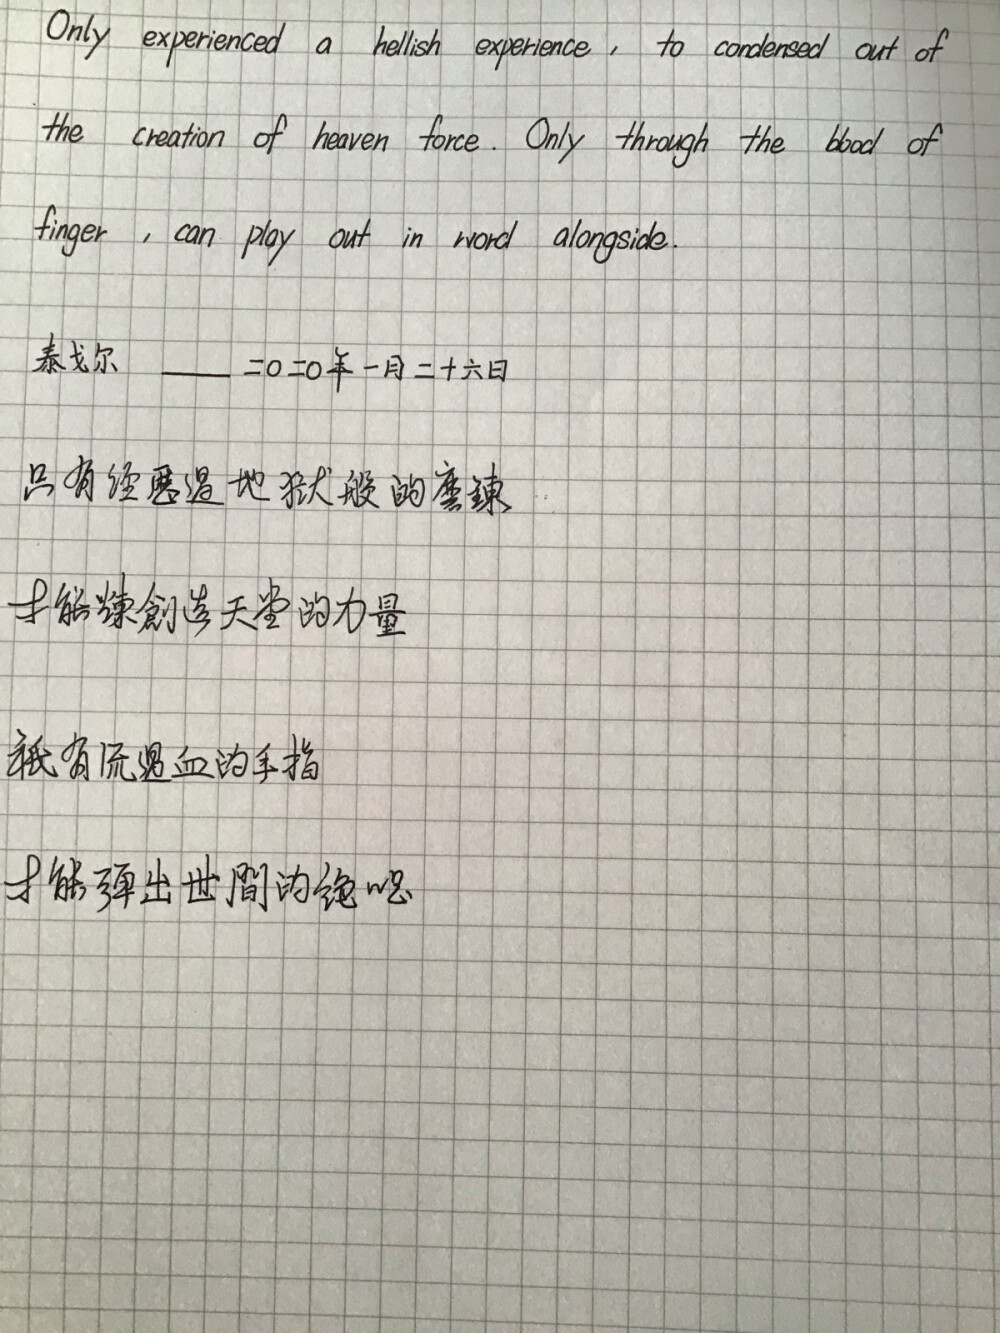 Only experienced a hellish experience, to condensed out of
the creation of heaven force. Only through the blood of
finger, can play out in word alongside.
泰戈尔 —— 二〇二〇年一月二十六日
只有经歷過地獄般的磨鍊
才能煉創造天堂的力量
祇有流過血的手指
才能彈出世間的绝唱